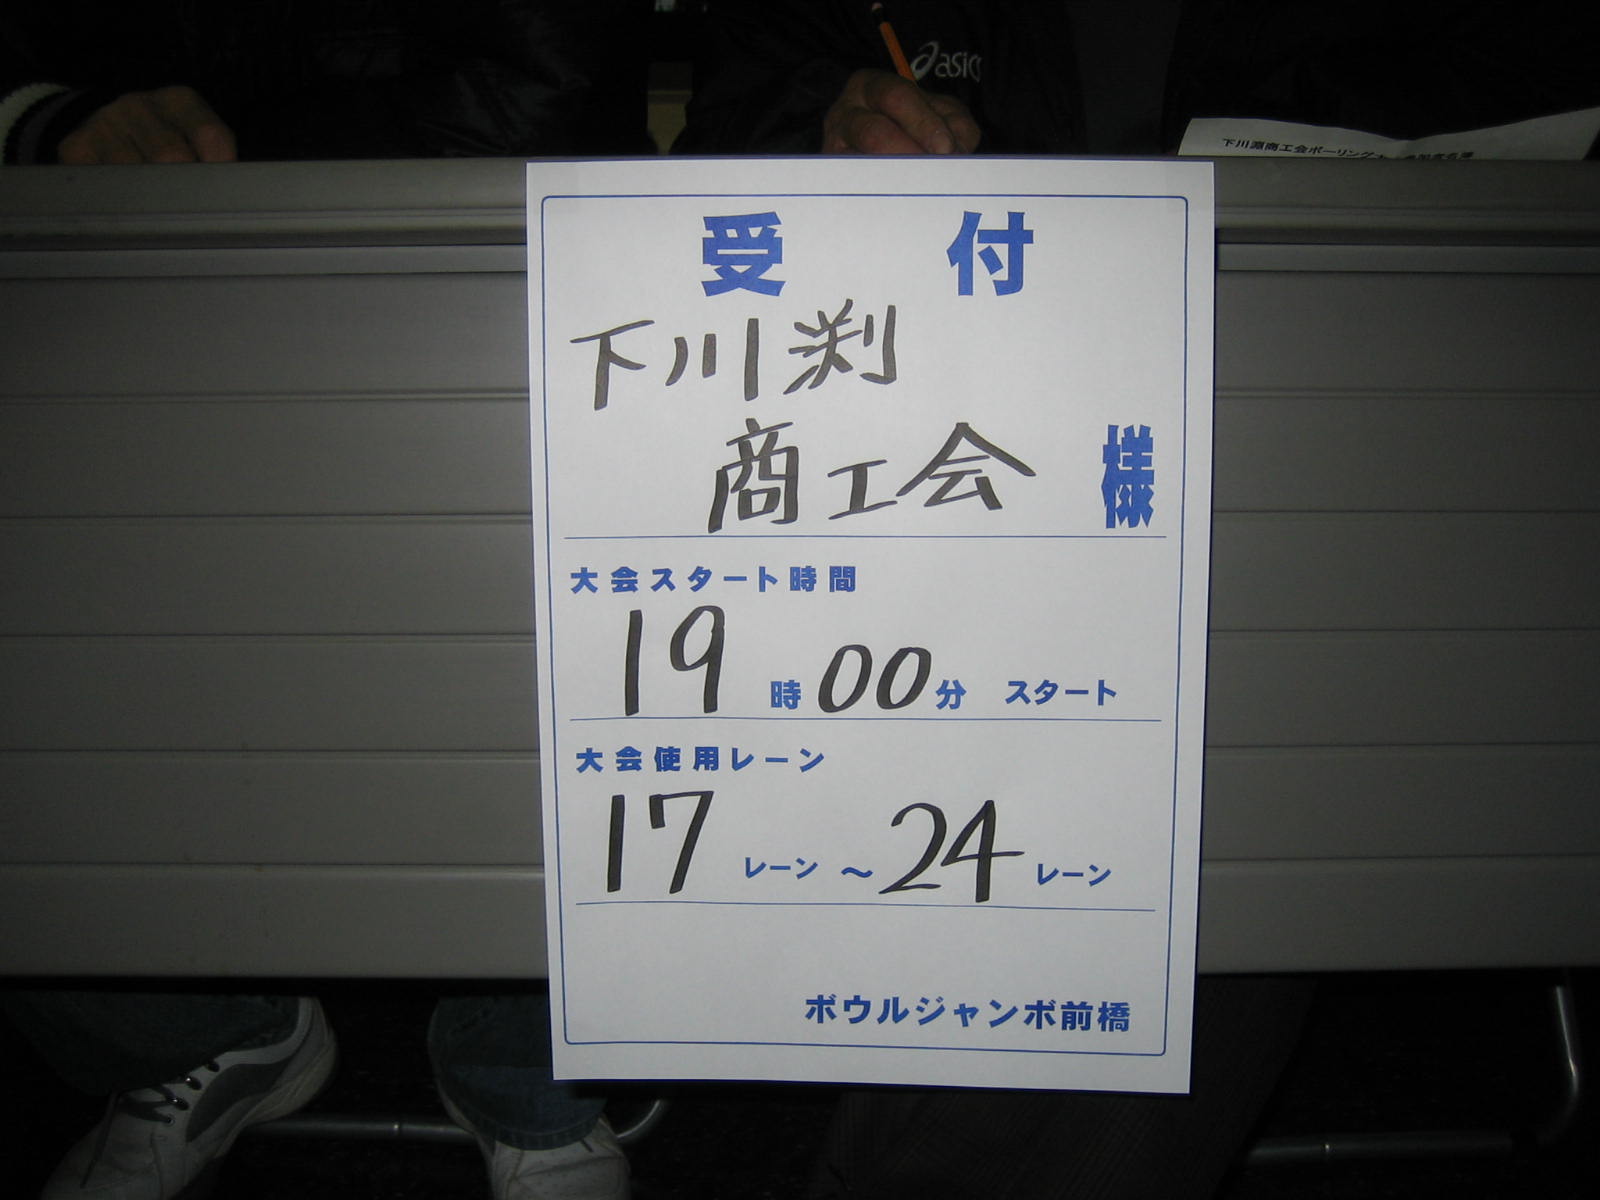 asics
下川淵商工会ボーリング
受付
下川渕
商工会 様
大会スタート時間
19時00分 スタート
大会使用レーン
17レーン ～ 24レーン
ボウルジャンボ前橋